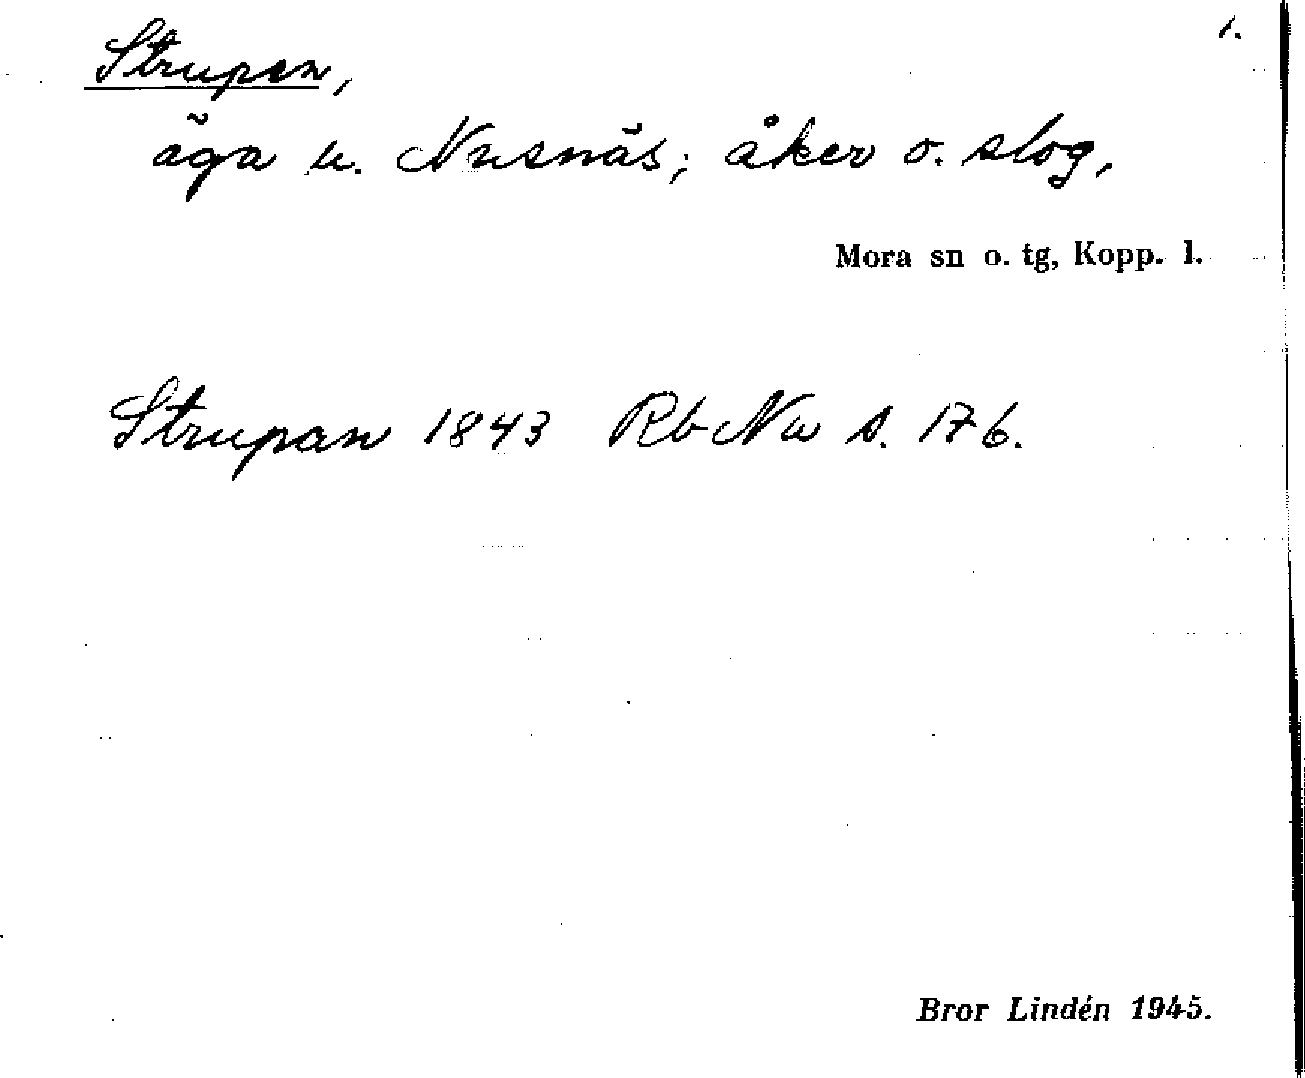 1.
Strupen,
äga u. Nusnäs; åker o. slog,
Mora sn o. tg, Kopp. l.
Strupan 1843 Rb Nu s. 176.
Bror Lindén 1945.